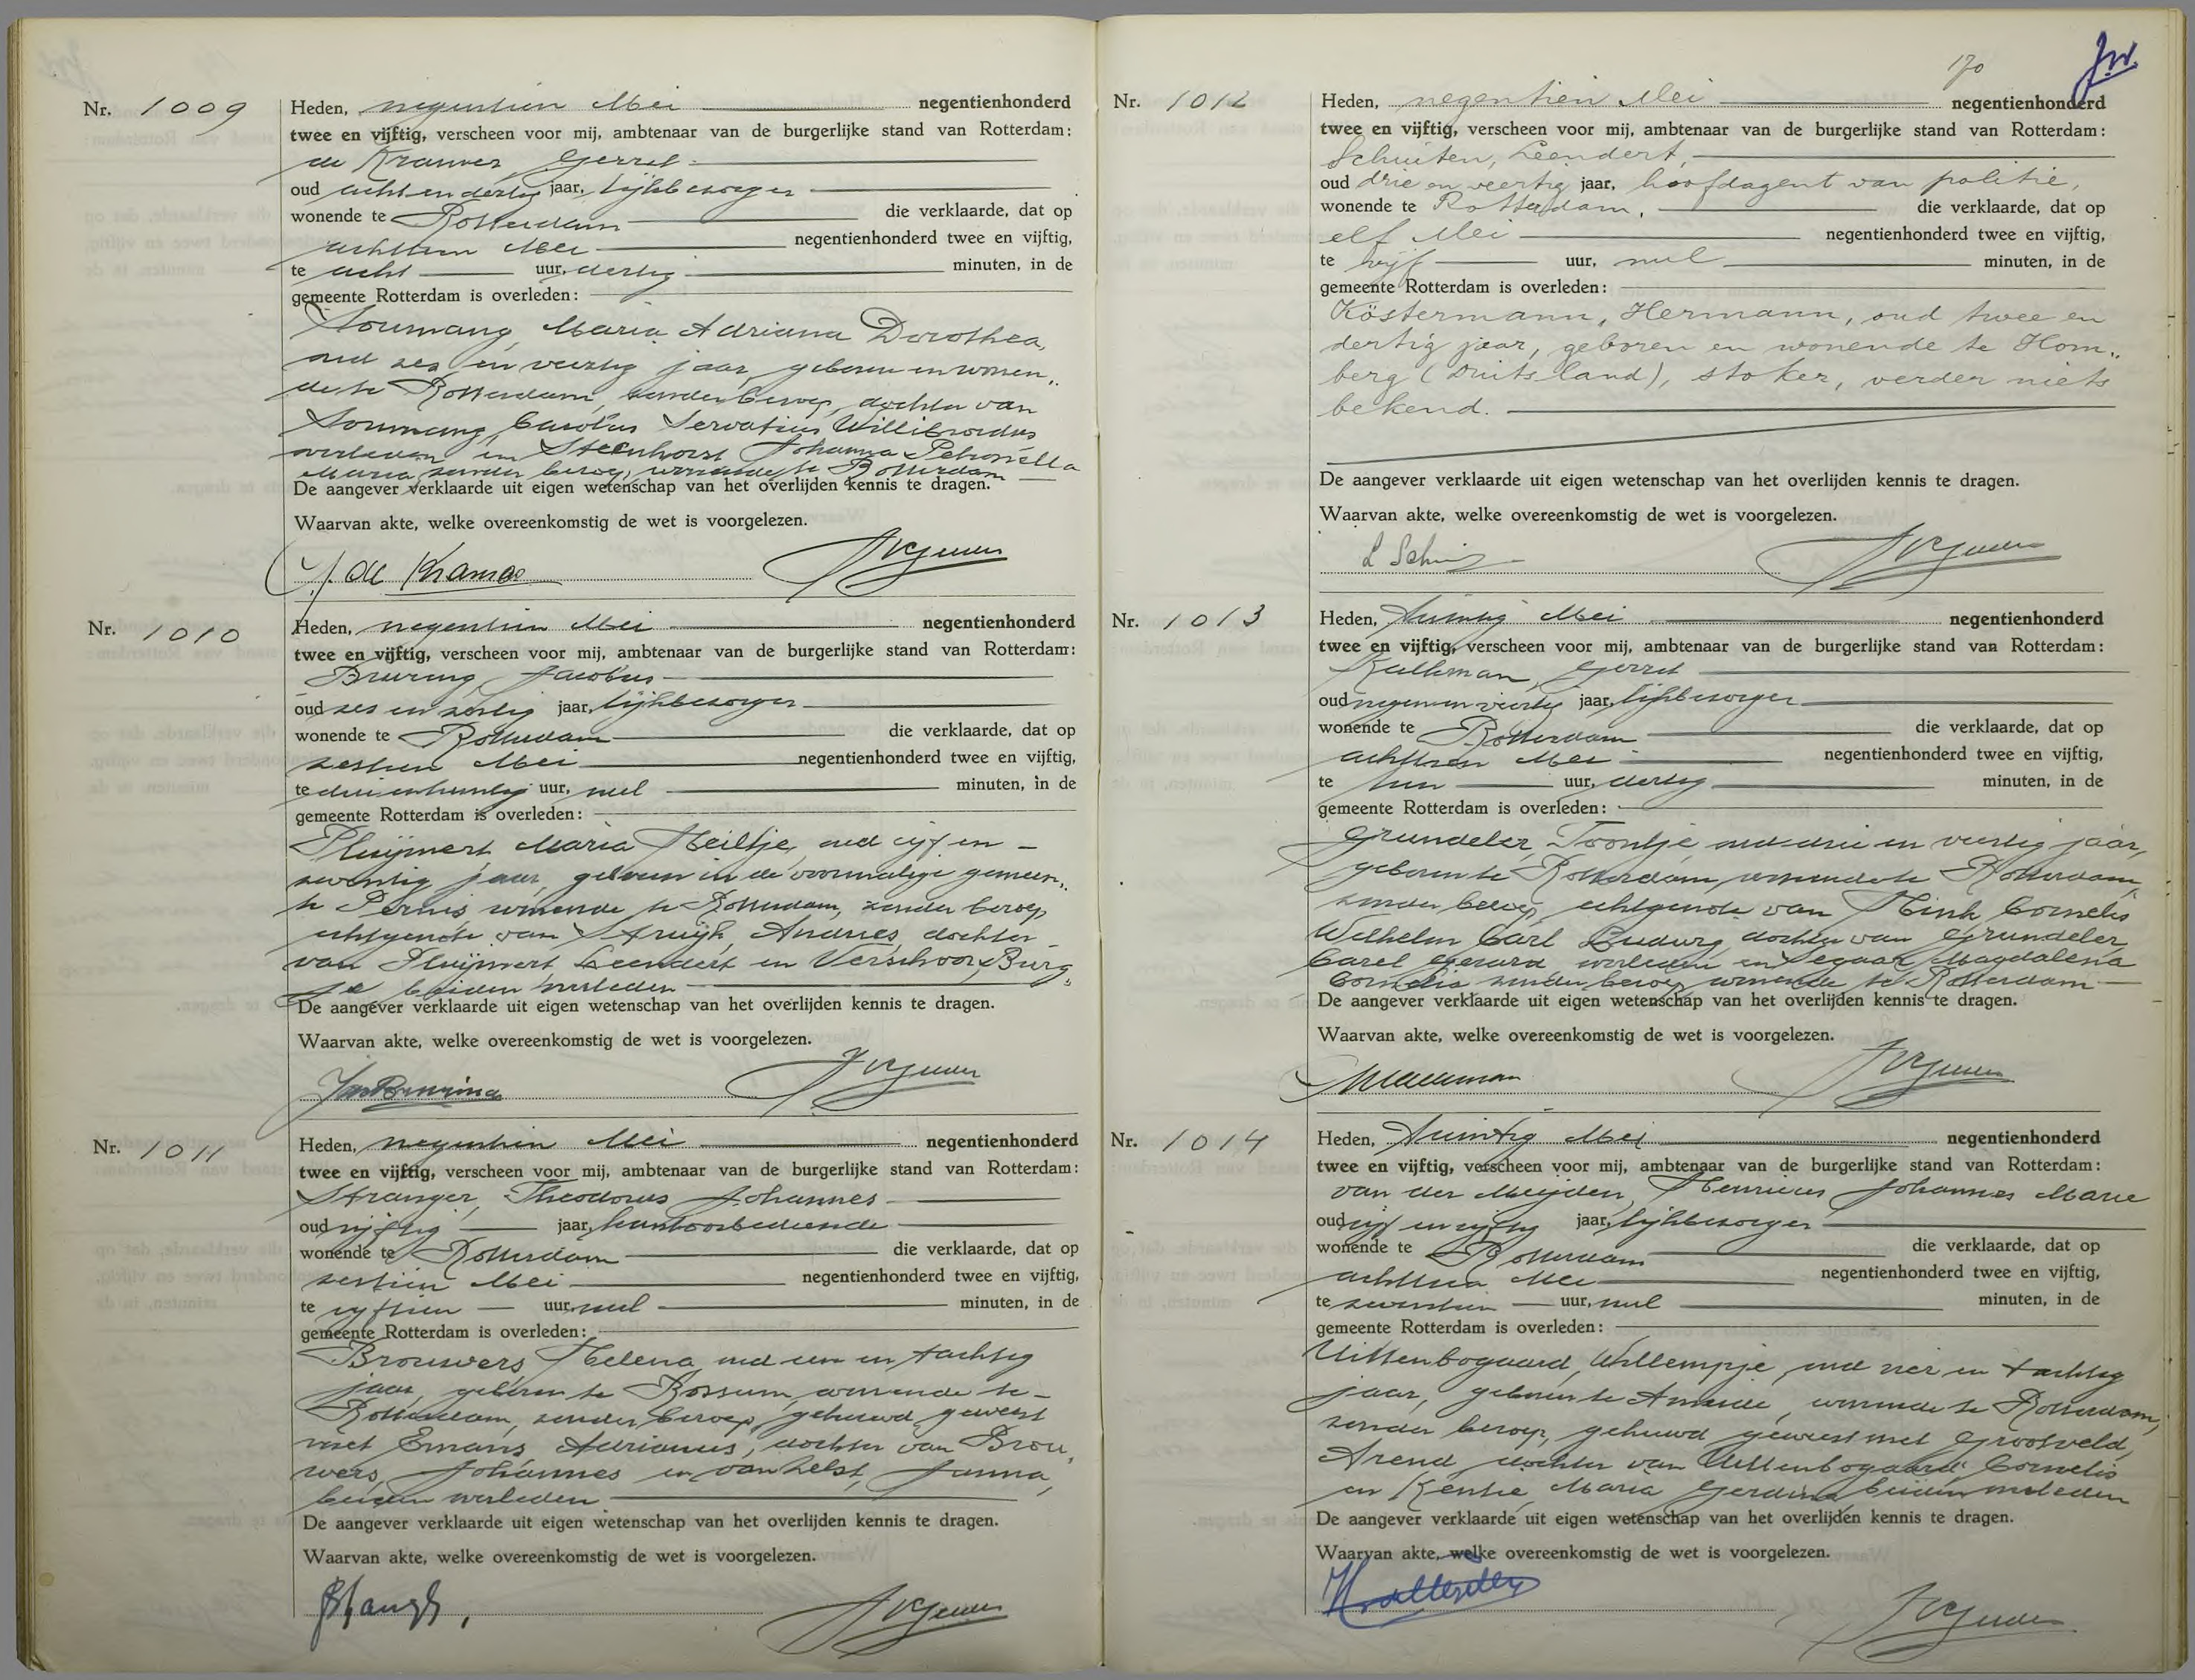 Nr. 1009
Heden, negentien Mei negentienhonderd
twee en vijftig, verscheen voor mij, ambtenaar van de burgerlijke stand van Rotterdam:
de Kramer, Gerrit
oud acht en dertig jaar, lijkbezorger
wonende te Rotterdam die verklaarde, dat op
achttien Mei negentienhonderd twee en vijftig,
te acht uur, dertig minuten, in de
gemeente Rotterdam is overleden:
Maria Adriana Dorothea,
oud zes en veertig jaar, geboren en wonen„
de te Rotterdam, zonder beroep, dochter van
Carolus Servatius Willibrordus
overleden en Steenhorst Johanna Petronella
Maria, zonder beroep, wonende te Rotterdam
De aangever verklaarde uit eigen wetenschap van het overlijden kennis te dragen.
Waarvan akte, welke overeenkomstig de wet is voorgelezen.
de Kramer
Nr. 1010
Heden, negentien Mei negentienhonderd
twee en vijftig, verscheen voor mij, ambtenaar van de burgerlijke stand van Rotterdam:
Bruring, Jacobus
oud zes en zestig jaar, lijkbezorger
wonende te Rotterdam die verklaarde, dat op
zestien Mei negentienhonderd twee en vijftig,
te drieentwintig uur, nul minuten, in de
gemeente Rotterdam is overleden:
Pluijmert, Maria Heiltje, oud vijf en
zeventig jaar, geboren in de voormalige gemeen„
te Pernis, wonende te Rotterdam, zonder beroep
echtgenote van Struijk, Andries, dochter
van Pluijmert, Leendert en Verschoor, Burg„
je, beiden overleden
De aangever verklaarde uit eigen wetenschap van het overlijden kennis te dragen.
Waarvan akte, welke overeenkomstig de wet is voorgelezen.
Nr. 1011
Heden, negentien Mei negentienhonderd
twee en vijftig, verscheen voor mij, ambtenaar van de burgerlijke stand van Rotterdam:
Stranger, Theodorus Johannes
oud vijftig jaar, kantoorbediende
wonende te Rotterdam die verklaarde, dat op
zestien Mei negentienhonderd twee en vijftig,
te vijftien uur, nul minuten, in de
gemeente Rotterdam is overleden:
Brouwers, Helena, oud een en tachtig
jaar, geboren te Rossum, wonende te
Rotterdam, zonder beroep, gehuwd geweest
met Emans, Adrianus, dochter van Brou„
wers, Johannes en van Helst, Janna,
beiden overleden
De aangever verklaarde uit eigen wetenschap van het overlijden kennis te dragen.
Waarvan akte, welke overeenkomstig de wet is voorgelezen.
170
Nr. 1012
Heden, negentien Mei negentienhonderd
twee en vijftig, verscheen voor mij, ambtenaar van de burgerlijke stand van Rotterdam:
Schuiten, Leendert,
oud drie en veertig jaar, hoofdagent van politie,
wonende te Rotterdam, die verklaarde, dat op
elf Mei negentienhonderd twee en vijftig,
te vijf uur, nul minuten, in de
gemeente Rotterdam is overleden:
Köstermann, Hermann, oud twee en
dertig jaar, geboren en wonende te Hom„
berg (Duitsland), stoker, verder niets
bekend.
De aangever verklaarde uit eigen wetenschap van het overlijden kennis te dragen.
Waarvan akte, welke overeenkomstig de wet is voorgelezen.
Nr. 1013
Heden, twintig Mei negentienhonderd
twee en vijftig, verscheen voor mij, ambtenaar van de burgerlijke stand van Rotterdam:
Gerrit
oud negen en veertig jaar, lijkbezorger
wonende te Rotterdam die verklaarde, dat op
achttien Mei negentienhonderd twee en vijftig,
te tien uur, dertig minuten, in de
gemeente Rotterdam is overleden:
Grundeler, Toontje, oud drie en veertig jaar,
geboren te Rotterdam, wonende te Rotterdam,
zonder beroep, echtgenote van Hink, Cornelis
Wilhelm Carl Ludwig, dochter van Grundeler,
Carel Gerard, overleden en Segaar, Magdalena
Cornelia, zonder beroep, wonende te Rotterdam
De aangever verklaarde uit eigen wetenschap van het overlijden kennis te dragen.
Waarvan akte, welke overeenkomstig de wet is voorgelezen.
Nr. 1014
Heden, twintig Mei negentienhonderd
twee en vijftig, verscheen voor mij, ambtenaar van de burgerlijke stand van Rotterdam:
van der Meijden, Henricus Johannes Marie
oud vijf en vijftig jaar, lijkbezorger
wonende te Rotterdam die verklaarde, dat op
achttien Mei negentienhonderd twee en vijftig,
te zeventien uur, nul minuten, in de
gemeente Rotterdam is overleden:
Uittenbogaard, Willempje, oud vier en tachtig
jaar, geboren te Ameide, wonende te Rotterdam,
zonder beroep, gehuwd geweest met Grootveld,
Arend, dochter van Uittenbogaard, Cornelis
en Kentie, Maria Gerdina, beiden overleden
De aangever verklaarde uit eigen wetenschap van het overlijden kennis te dragen.
Waarvan akte, welke overeenkomstig de wet is voorgelezen.